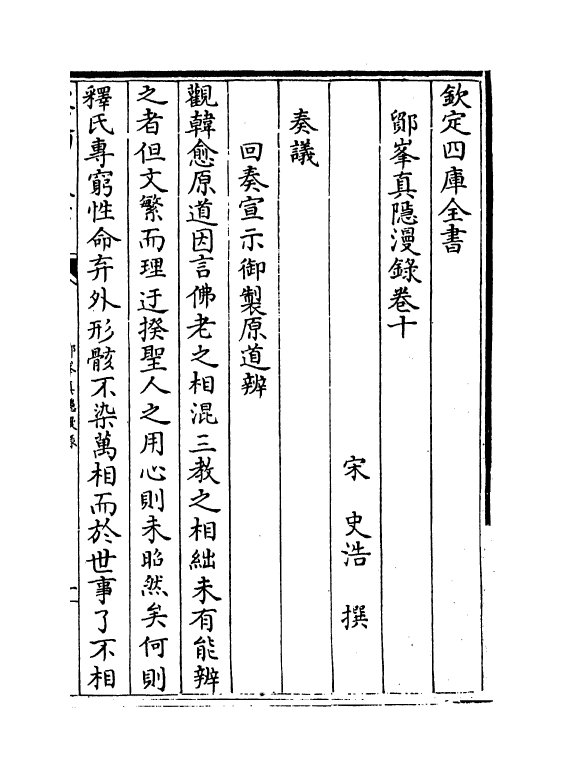 欽定四庫全書
鄮峯真隱漫錄卷十
宋 史浩 撰
奏議
回奏宣示御製原道辨
觀韓愈原道因言佛老之相混三教之相絀未有能辨
之者但文繁而理迂揆聖人之用心則未昭然矣何則
釋氏專窮性命弃外形骸不染萬相而於世事了不相